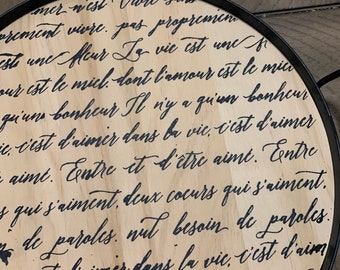 aimer n'est
prement vivre. pas proprement
est une fleur La vie est une
est le miel. dont l'amour est le miel.
qu'un bonheur Il n'y a qu'un bonheur
c'est d'aimer dans la vie, c'est d'aimer
aimé. Entre et d'être aimé. Entre
s qui s'aiment, deux coeurs qui s'aiment,
de paroles. nul besoin de paroles.
et d'aimer dans la vie, c'est d'aim